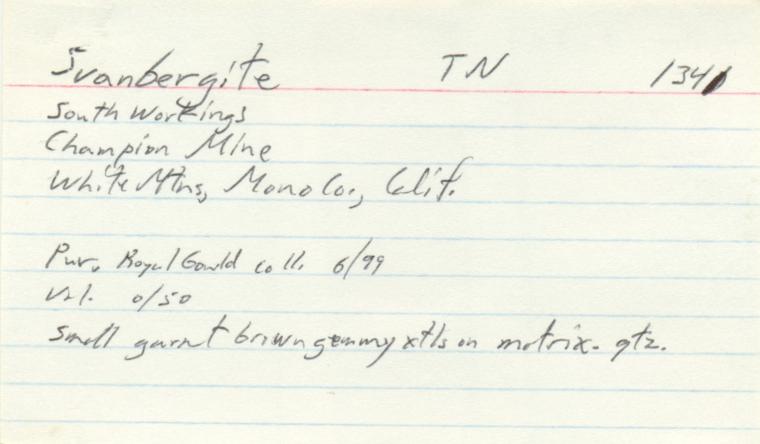 Svanbergite TN 1341
South Workings
Champion Mine
White Mtns, Mono Co., Calif.
Pur. Royal Gould coll. 6/99
Val. 0/50
Small garnet brown gemmy xtls on matrix. qtz.